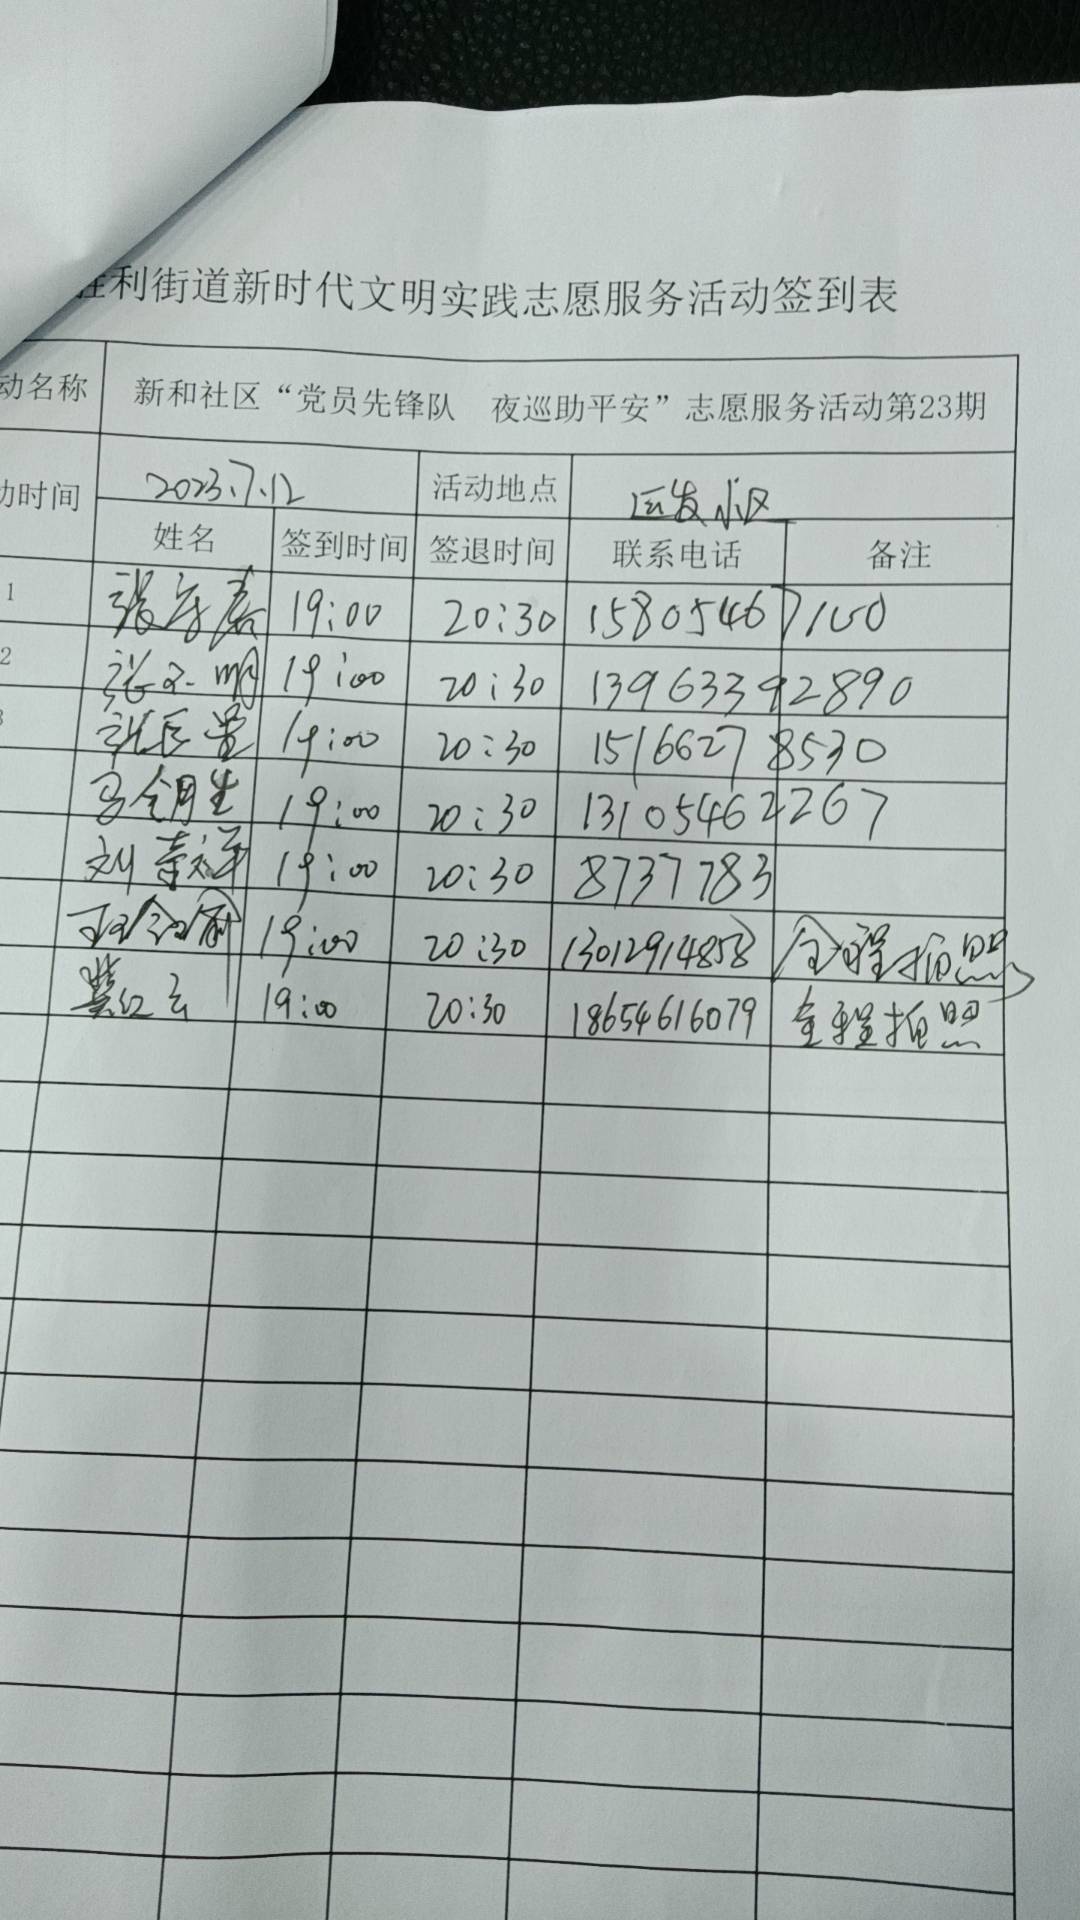 胜利街道新时代文明实践志愿服务活动签到表
动名称 新和社区“党员先锋队 夜巡助平安”志愿服务活动第23期
动时间 2023.7.12 活动地点 小区
姓名 签到时间 签退时间 联系电话 备注
1 张 19:00 20:30 15805467100
2 张 明 19:00 20:30 13963392890
3 19:00 20:30 15166278530
19:00 20:30 13105462267
刘 19:00 20:30 8737783
19:00 20:30 13012914858 全程拍照
19:00 20:30 18654616079 全程拍照